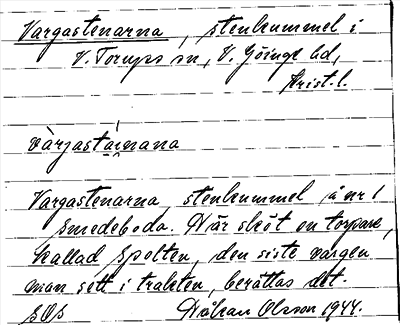 Vargastenarna, stenkummel i
V. Torups sn, V. Göinge hd,
Krist. l.
vàrgastá̤i̯nana
Vargastenarna, stenkummel å nr 1
Smedeboda. Där sköt en torpare,
kallad Spolten, den siste vargen
man sett i trakten, berättas det.
SOS Håkan Olsson 1944.